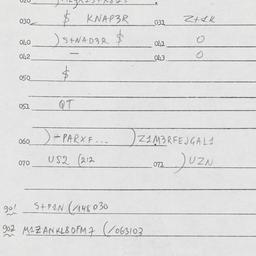 030 $ KNAP3R 031 Z+1K
040 )S+NAD3R $ 041 O
042 — 043 O
050 $
051 QT
060 )-PARXF... )Z1M3RFEJGAL1
070 US2 (212 071 )UZN
901 S+P1N (/148030
902 M1ZANKL8OFM7 (/063103